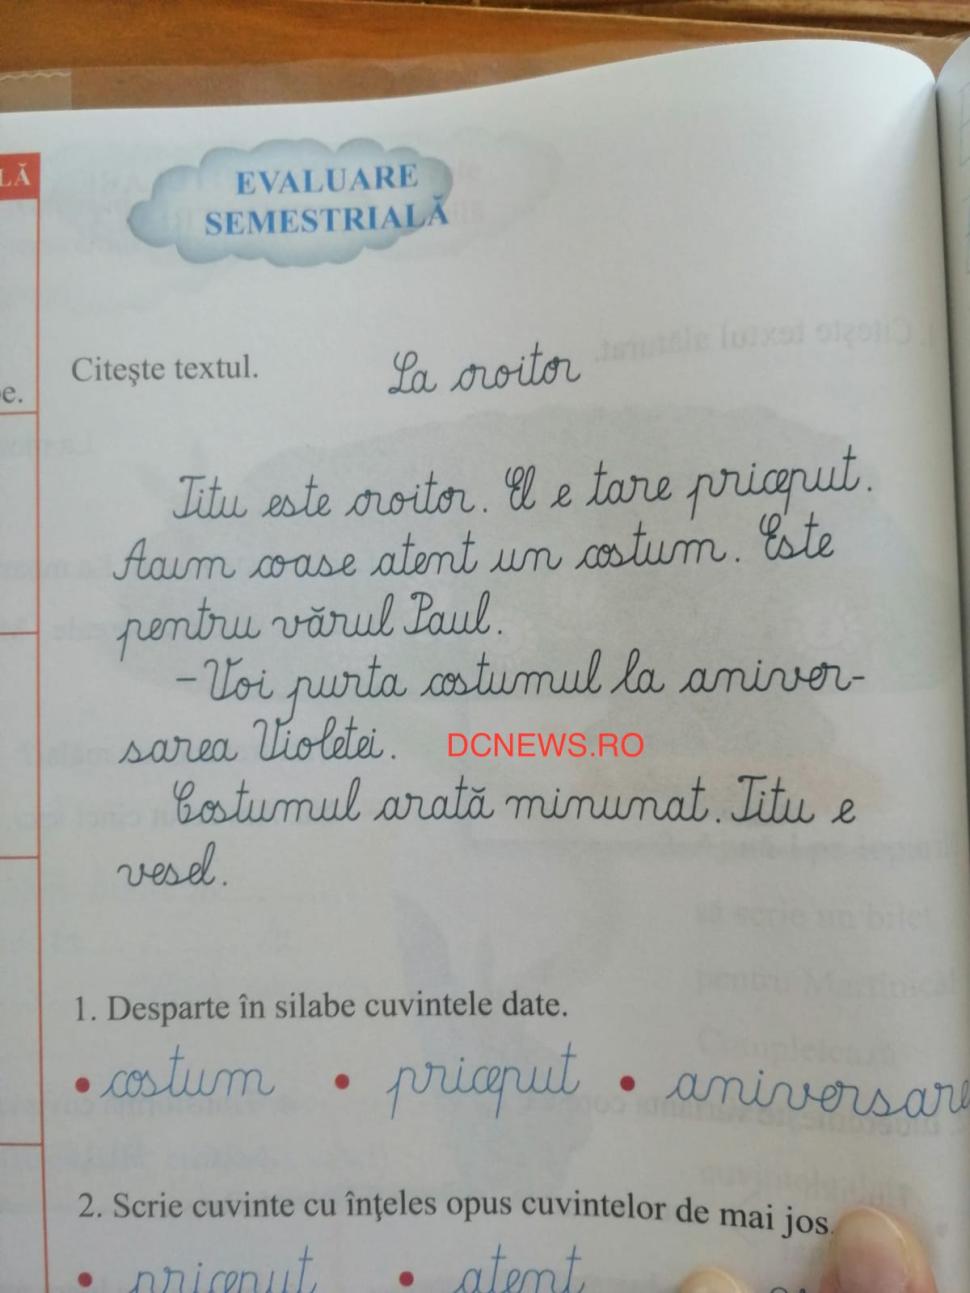 LĂ
EVALUARE
SEMESTRIALĂ
Citeşte textul.
La croitor
e.
Titu este croitor. El e tare priceput.
Acum coase atent un costum. Este
pentru vărul Paul.
-Voi purta costumul la aniver-
sarea Violetei.
DCNEWS.RO
Costumul arată minunat. Titu e
vesel.
1. Desparte în silabe cuvintele date.
• costum • priceput • aniversare
2. Scrie cuvinte cu înţeles opus cuvintelor de mai jos.
• priceput • atent